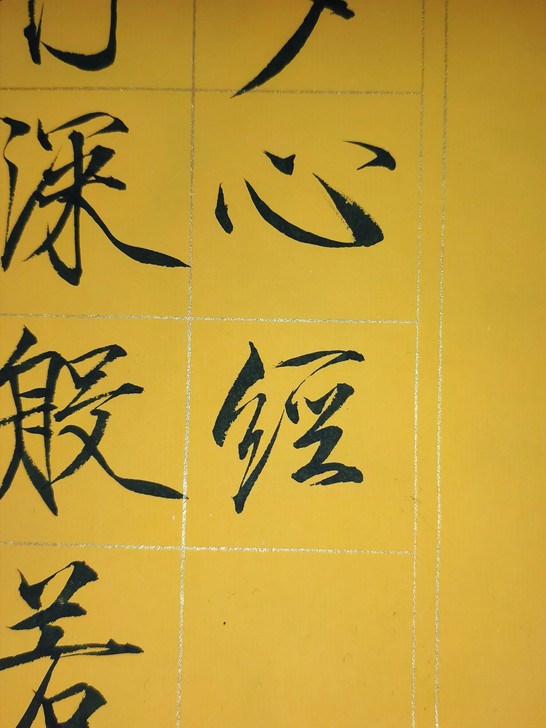 心經
行深般若